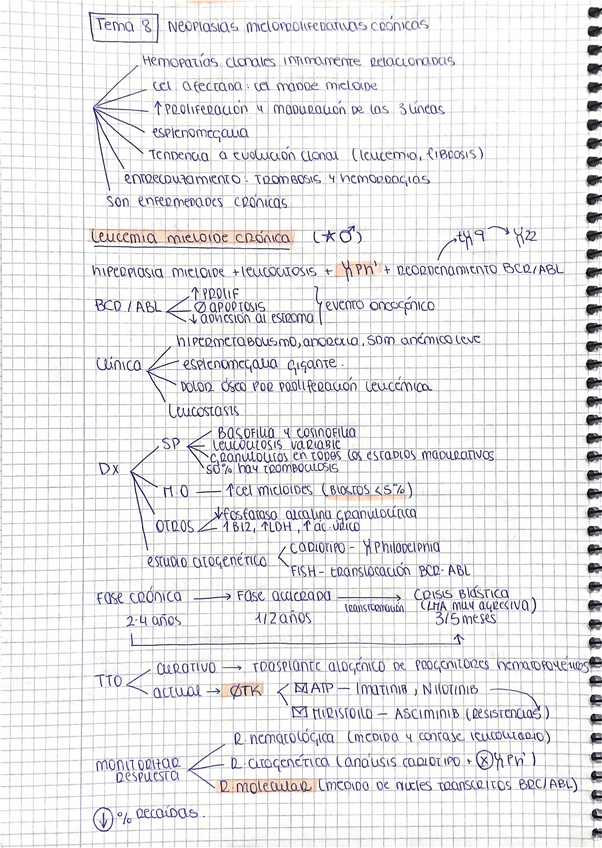 Tema 8 Neoplasias mieloproliferativas crónicas
Hemopatías clonales íntimamente relacionadas
cel afectada: cel madre mieloide
↑ proliferación y maduración de las 3 líneas
esplenomegalia
Tendencia a evolución clonal (leucemia, fibrosis)
entrecruzamiento: trombosis y hemorragias
son enfermedades crónicas
Leucemia mieloide crónica (*♂)
t 9 → 22
hiperplasia mieloide + leucocitosis + Ph' + Reordenamiento BCR/ABL
↑ prolif
BCR / ABL ∅ apoptosis } evento oncogénico
↓ adhesión al estroma
hipermetabolismo, anorexia, sdm anémico leve
Clínica esplenomegalia gigante.
Dolor óseo por proliferación leucémica
Leucostasis
Basofilia y eosinofilia
SP leucocitosis variable
granulocitos en todos los estadios madurativos
50% hay trombocitosis
DX M.O — ↑ cel mieloides (Blastos <5%)
↓ fosfatasa alcalina granulocítica
OTROS ↑ B12, ↑ LDH, ↑ ác. úrico
estudio citogenético cariotipo - Philadelphia
FISH - translocación BCR-ABL
Fase crónica → Fase acelerada → Crisis blástica
transformación (LMA muy agresiva)
2-4 años 1/2 años 3/5 meses
curativo → trasplante alogénico de progenitores hematopoyéticos
TTO actual → ∅TK ATP — Imatinib, Nilotinib
Miristoilo — Asciminib (resistencias)
R. hematológica (medida y contaje leucocitario)
monitorizar respuesta R. citogenética (análisis cariotipo + Ph')
R. molecular (medida de nucleo transcritos BRC/ABL)
↓ % recaídas.